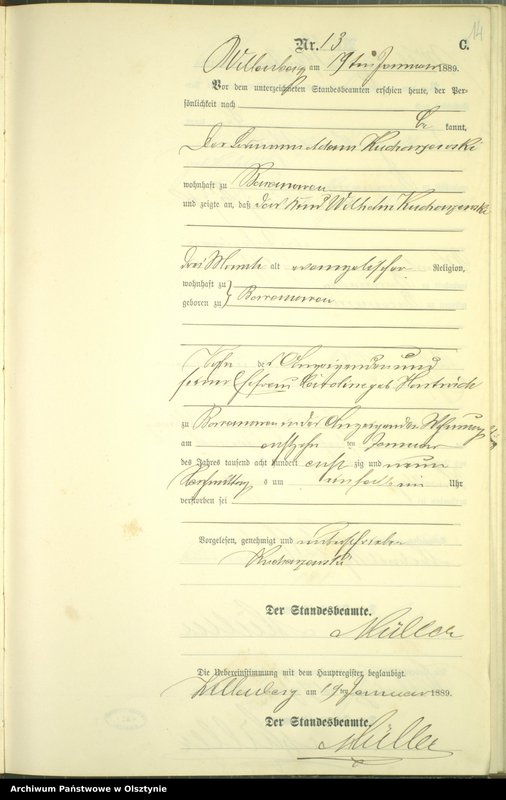 14
Nr. 13 C.
Willenberg am 19ten Januar 1889.
Vor dem unterzeichneten Standesbeamten erschien heute, der Per-
sönlichkeit nach
be kannt,
Der Adam Kucharzewski
wohnhaft zu Baranowen
und zeigte an, daß das Kind Wilhelm Kucharzewski
drei Monate alt evangelischer Religion,
wohnhaft zu
geboren zu Baranowen
Sohn des Anzeigenden und
seiner Ehefrau Karoline geb
zu Baranowen in der Anzeigenden Wohnung
am achtzehn ten Januar
des Jahres tausend acht hundert acht zig und neun
Nachmittag s um ein Uhr
verstorben sei
Vorgelesen, genehmigt und unterschrieben
Kucharzewski
Der Standesbeamte.
Müller
Die Uebereinstimmung mit dem Hauptregister beglaubigt.
Willenberg am 19ten Januar 1889.
Der Standesbeamte.
Müller
Archiwum Państwowe w Olsztynie